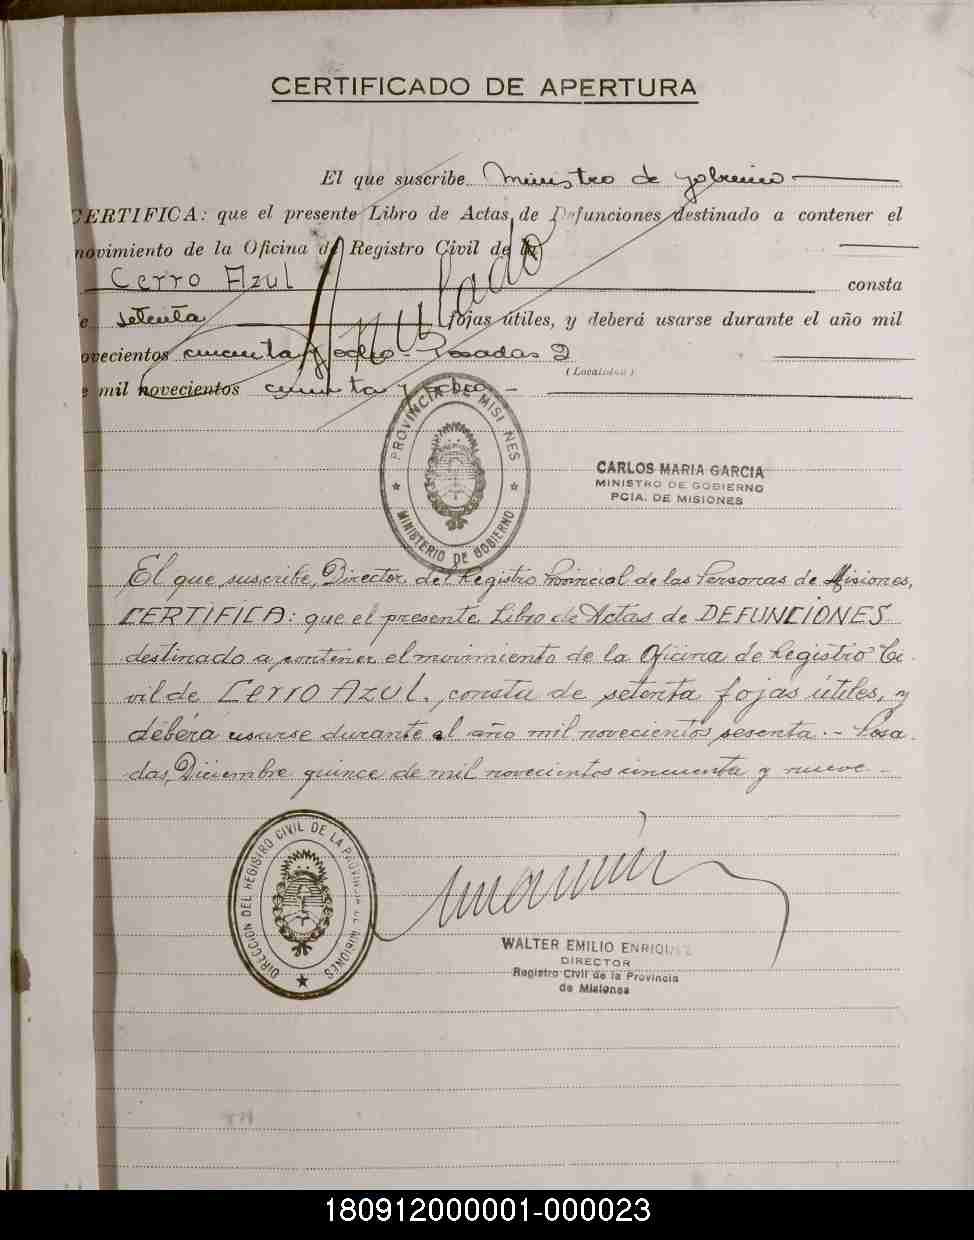 CERTIFICADO DE APERTURA
El que suscribe Ministro de gobierno
CERTIFICA: que el presente Libro de Actas de Defunciones destinado a contener el
movimiento de la Oficina de Registro Civil de
Cerro Azul consta
setenta fojas útiles, y deberá usarse durante el año mil
novecientos cincuenta y ocho - Posadas 2
(Localidad)
de mil novecientos cincuenta y ocho -
Anulado
PROVINCIA DE MISIONES
MINISTERIO DE GOBIERNO
CARLOS MARIA GARCIA
MINISTRO DE GOBIERNO
PCIA. DE MISIONES
El que suscribe, Director del Registro Provincial de las Personas de Misiones,
CERTIFICA: que el presente Libro de Actas de DEFUNCIONES
destinado a contener el movimiento de la Oficina de Registro Ci-
vil de CERRO AZUL, consta de setenta fojas útiles, y
deberá usarse durante el año mil novecientos sesenta.- Posa-
das, Diciembre quince de mil novecientos cincuenta y nueve.-
DIRECCION DEL REGISTRO CIVIL DE LA PROVINCIA DE MISIONES
WALTER EMILIO ENRIQUEZ
DIRECTOR
Registro Civil de la Provincia
de Misiones
180912000001-000023